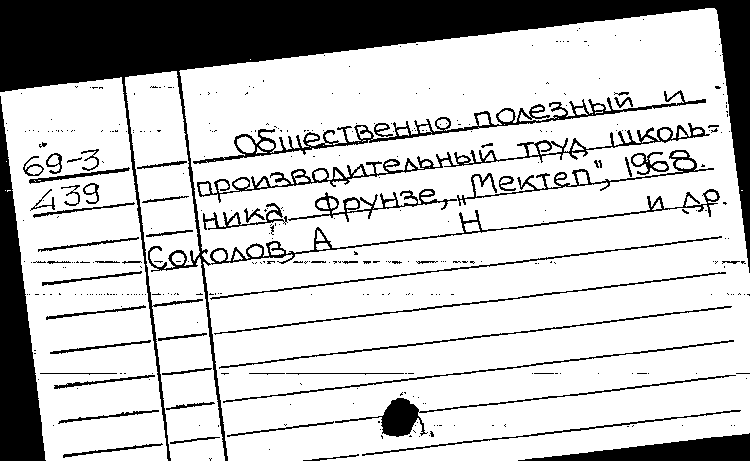 Общественно полезный и
69-3
производительный труд школь-
439
ника. Фрунзе, „Мектеп", 1968.
Соколов, А. Н и др.